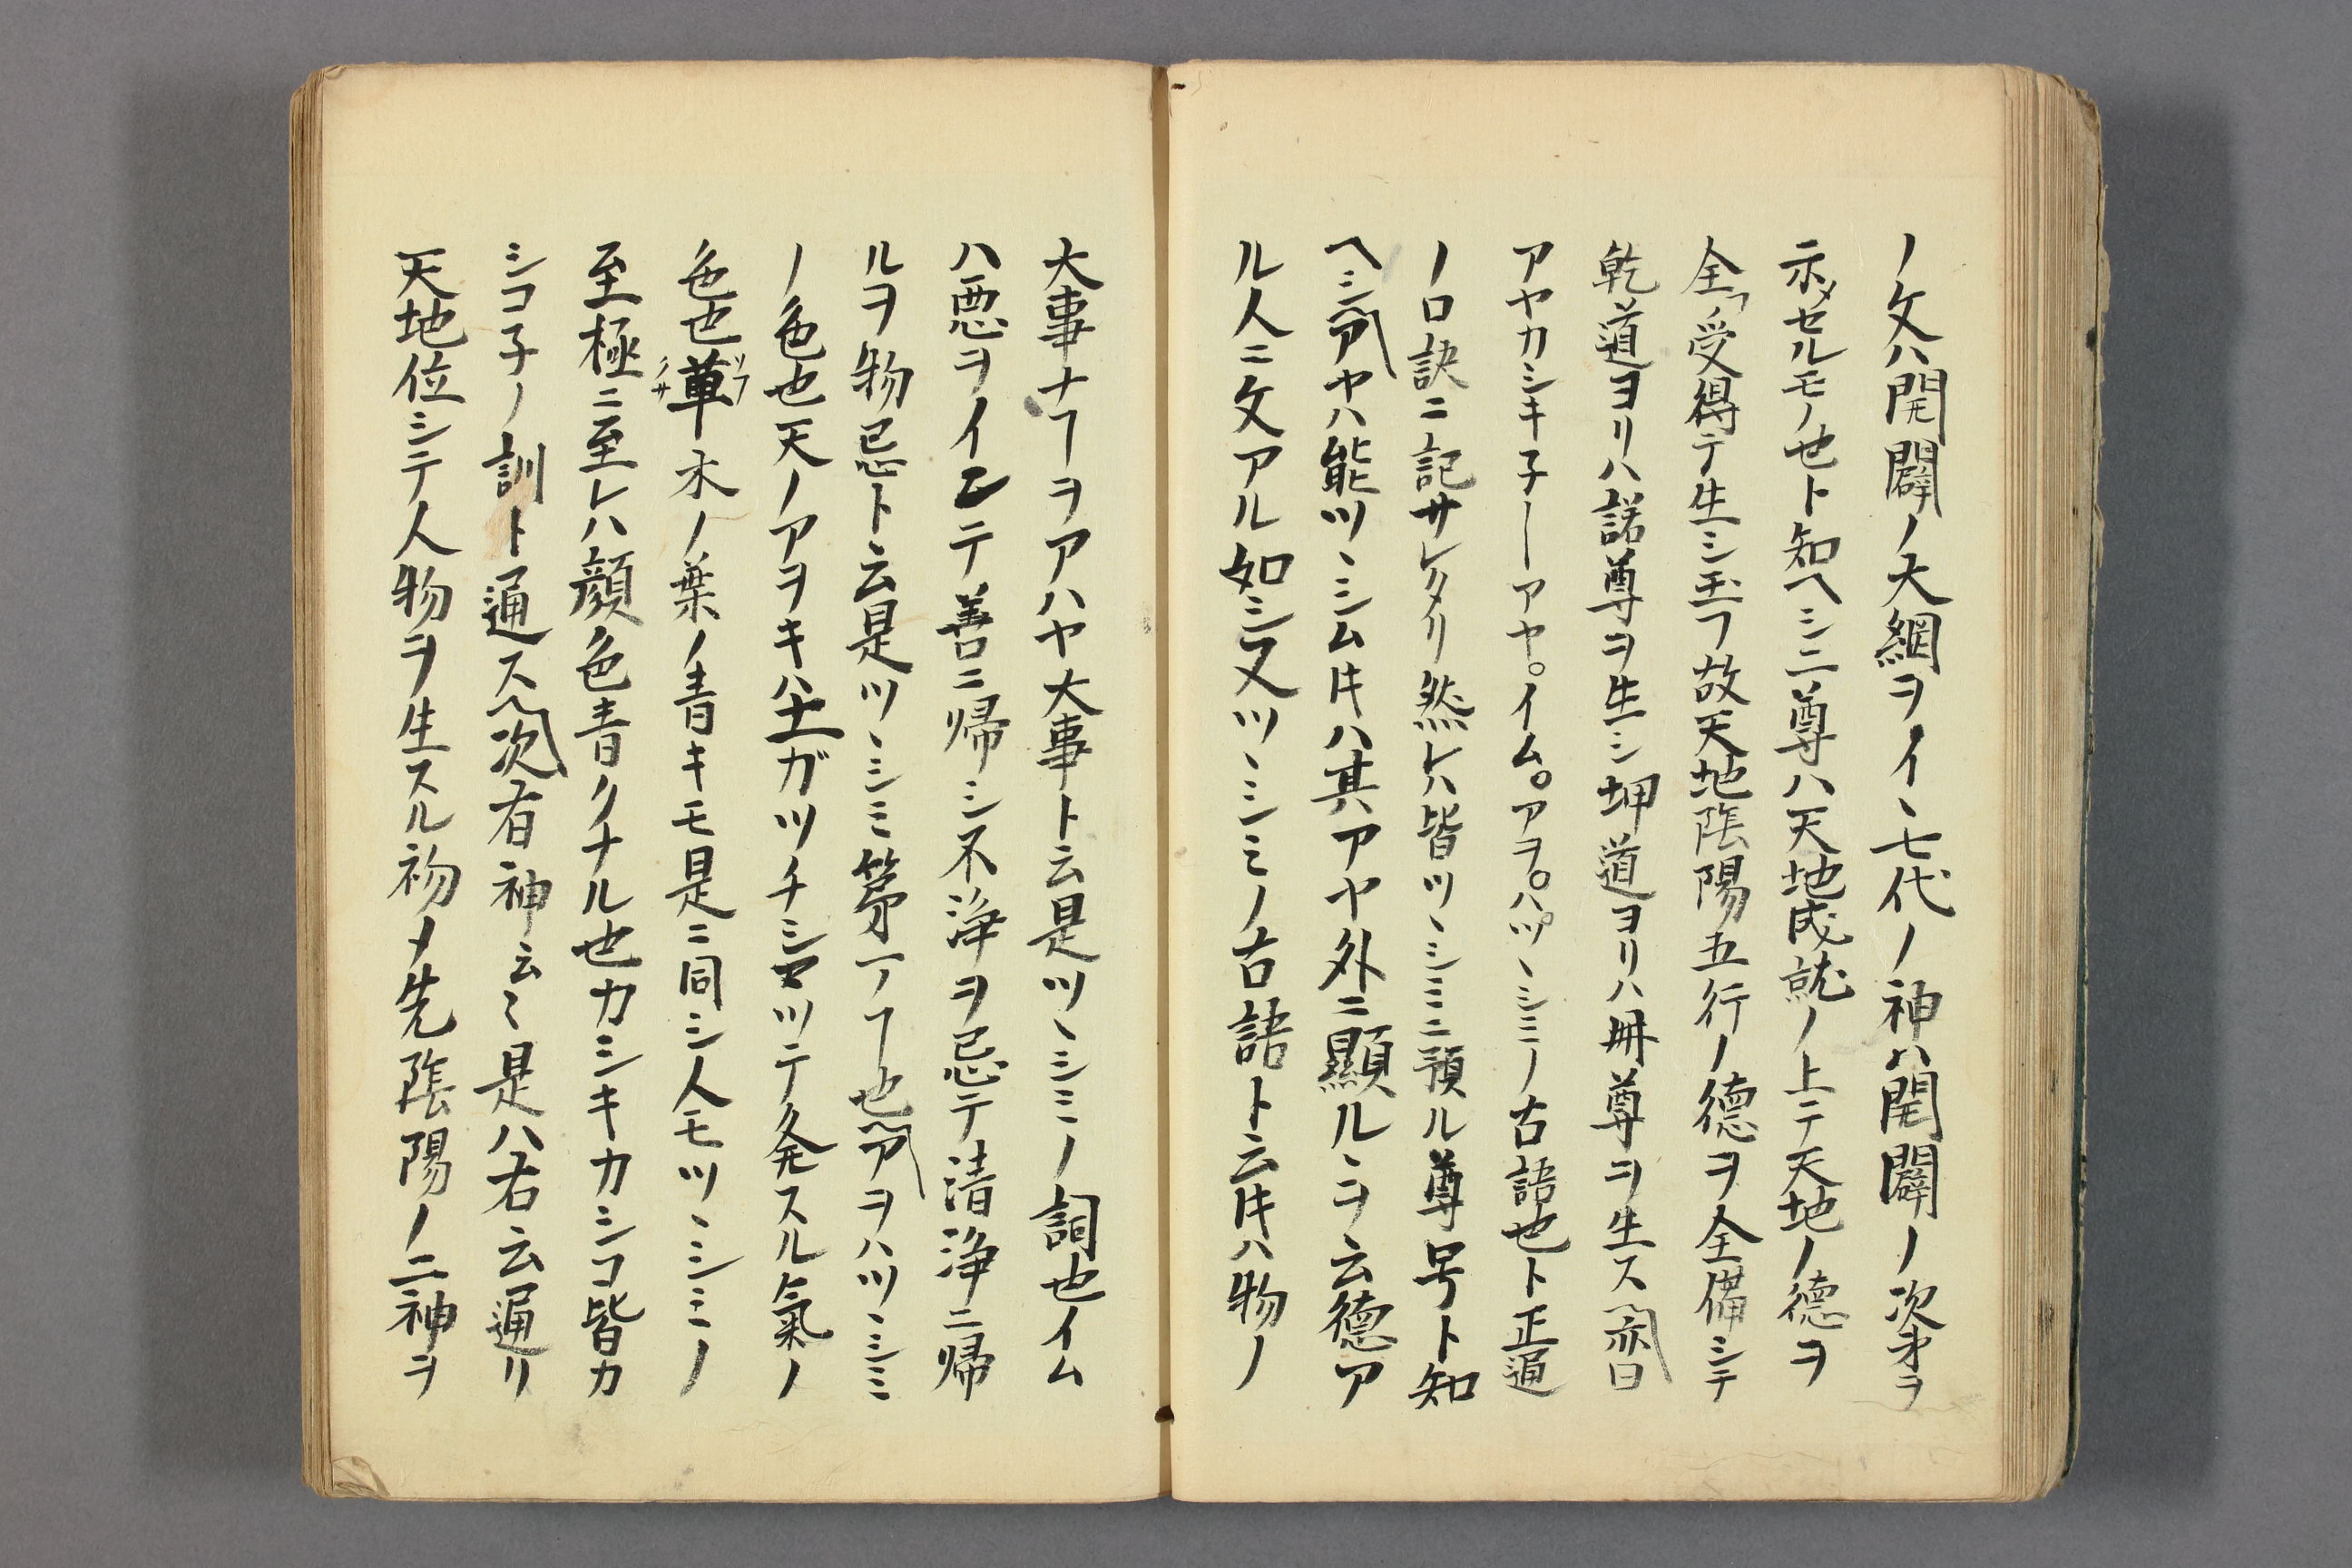 ノ文ハ開闢ノ大綱ヲイヽ七代ノ神ハ開闢ノ次才ヲ
示メセルモノ也ト知ヘシ二尊ハ天地成就ノ上テ天地ノ德ヲ
全フノ受得テ生シ玉フ故天地陰陽五行ノ德ヲ全備シテ
乾道ヨリハ諾尊ヲ生シ坤道ヨリハ冊尊ヲ生ス亦曰
アヤカシキ子ーアヤ。イム。アヲ。ハツヽシミノ古語也ト正通
ノ口訣ニ記サレタリ然レハ皆ツヽシミニ預ル尊号ト知
ヘシアヤハ能ツヽシム𪜈ハ其アヤ外ニ顯ルヽヲ云德ア
ル人ニ文アル如シ又ツヽシミノ古語ト云𪜈ハ物ノ
大事ナヿヲアハヤ大事ト云是ツヽシミノ詞也イム
ハ悪ヲイミテ善ニ帰シ不浄ヲ忌テ清浄ニ帰
ルヲ物忌ト云是ツヽシミ第一ノヿ也アヲハツヽシミ
ノ色也天ノアヲキハ土ガツチシマツテ発スル氣ノ
色也草木ノ葉ノ青キモ是ニ同シ人モツヽシミノ
至極ニ至レハ顔色青クナル也カシキカシコ皆カ
シコ子ノ訓ト通ス次有神云々是ハ右云通リ
天地位シテ人物ヲ生スル初メ先陰陽ノ二神ヲ